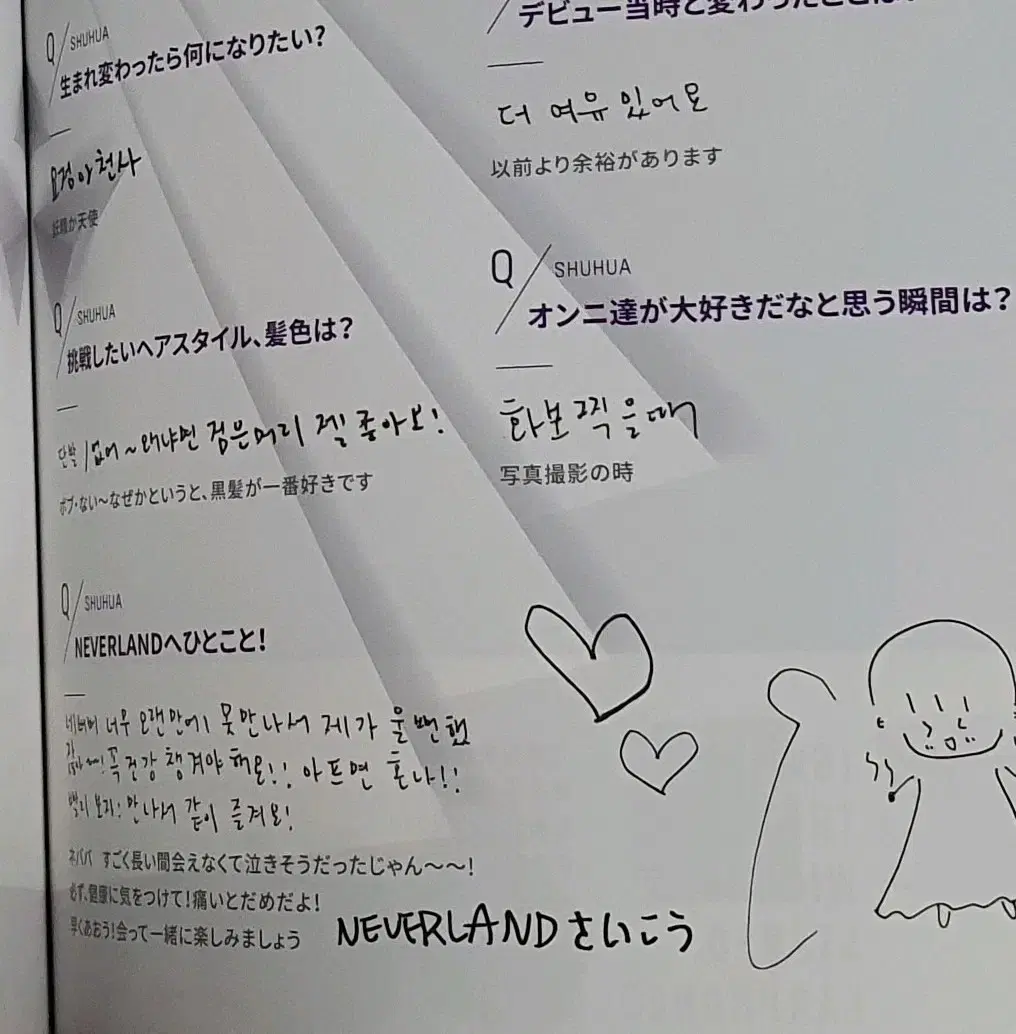 Q/SHUHUA
生まれ変わったら何になりたい?
요정아 천사
妖精か天使
Q/SHUHUA
挑戦したいヘアスタイル、髪色は?
단발/없어~왜냐면 검은머리 젤 좋아보!
ボブ・ない〜なぜかというと、黒髪が一番好きです
Q/SHUHUA
NEVERLANDへひとこと!
네버버 너무 오랜만에 못만나서 제가 울뻔했
잖아~~! 꼭 건강 챙겨야 해요!! 아프면 혼나!!
빨리 보자! 만나서 같이 즐겨요!
ネバババ すごく長い間会えなくて泣きそうだったじゃん〜〜!
必ず、健康に気をつけて!痛いとだめだよ!
早くあおう!会って一緒に楽しみましょう
デビュー当時と変わったことは
더 여유 있어요
以前より余裕があります
Q/SHUHUA
オンニ達が大好きだなと思う瞬間は?
화보 찍을때
写真撮影の時
NEVERLANDさいこう